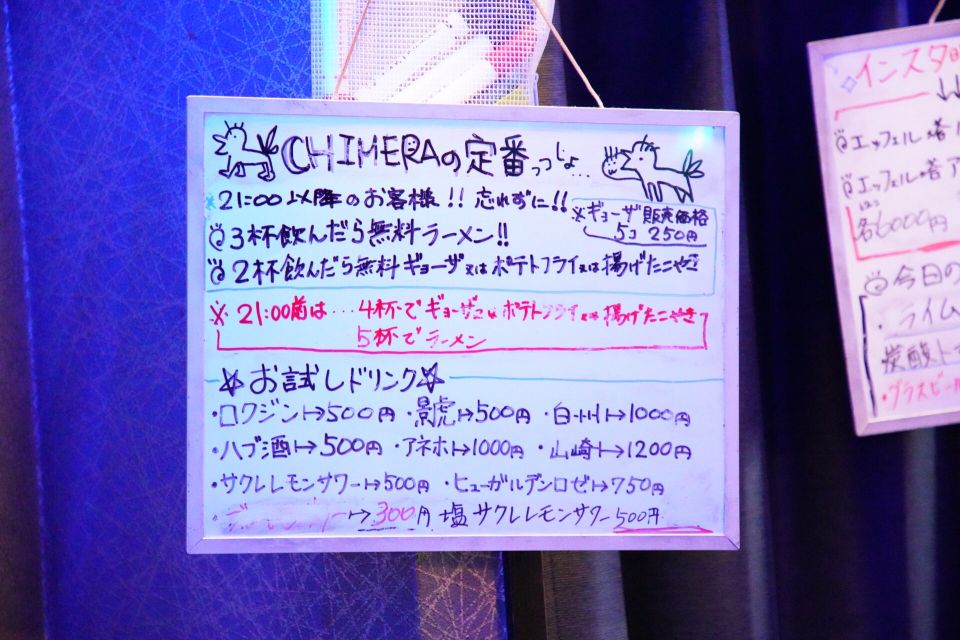 CHIMERAの定番っしょ...
21:00以降のお客様!!忘れずに!!
※ギョーザ販売価格
5コ 250円
3杯飲んだら無料ラーメン!!
2杯飲んだら無料ギョーザ又はポテトフライ又は揚げたこやき
※21:00前は…4杯でギョーザ又はポテトフライ又は揚げたこやき
5杯でラーメン
☆お試しドリンク☆
・ロクジン↦500円 ・景虎↦500円 ・白州↦1000円
・ハブ酒↦500円 ・アネホ↦1000円 ・山崎↦1200円
・サクレレモンサワー↦500円 ・ヒューガルデンロゼ↦750円
↦300円 塩サクレレモンサワー500円
インスタ
エッフェル塔
エッフェル塔
各6000円
今日の
・ライム
炭酸
・グラスビール